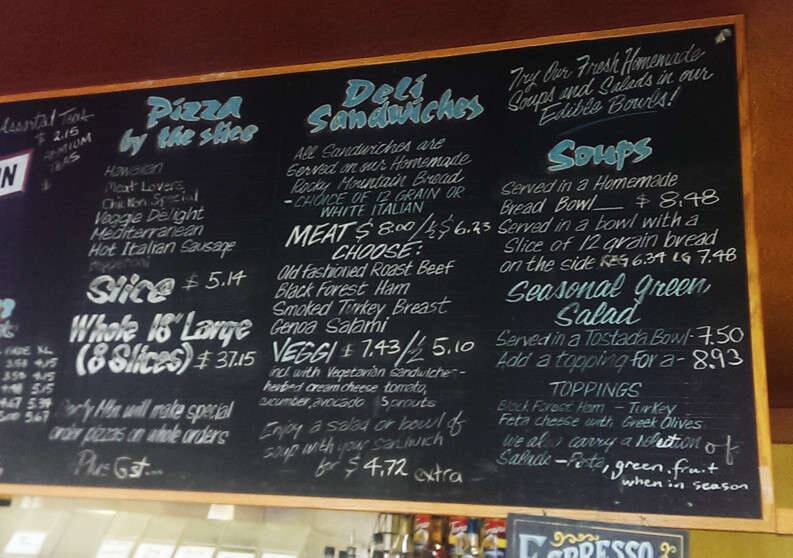 Assorted Teas
$ 2.15
PREMIUM
TEAS
$
N
XL
4.15
4.15
5.15
4.67 5.39
5.67
Pizza
by the slice
Hawaiian
Meat Lovers
Chicken Special
Veggie Delight
Mediterranean
Hot Italian Sausage
Slice $ 5.14
Whole 18" Large
(8 Slices) $ 37.15
Mtn. will make special
order pizzas on whole orders
Plus Gst...
Deli
Sandwiches
All Sandwiches are
Served on our Homemade
Rocky Mountain Bread
- CHOICE OF 12 GRAIN OR
WHITE ITALIAN
MEAT $ 8.00 / ½ $ 6.23
CHOOSE:
Old fashioned Roast Beef
Black Forest Ham
Smoked Turkey Breast
Genoa Salami
VEGGI $ 7.43 / ½ 5.10
incl with Vegetarian Sandwiches-
herbed cream cheese tomato,
cucumber, avocado Sprouts
Enjoy a salad or bowl of
soup with your sandwich
for $ 4.72 extra
Try Our Fresh Homemade
Soups and Salads in our
Edible Bowls!
Soups
Served in a Homemade
Bread Bowl $ 8.48
Served in a bowl with a
Slice of 12 grain bread
on the side REG 6.34 LG 7.48
Seasonal Green
Salad
Served in a Tostada Bowl - 7.50
Add a topping for a - 8.93
TOPPINGS
Black Forest Ham - Turkey
Feta cheese with Greek Olives
We also carry a selection of
Salads - Pasta, green, fruit
when in season
ESPRESSO